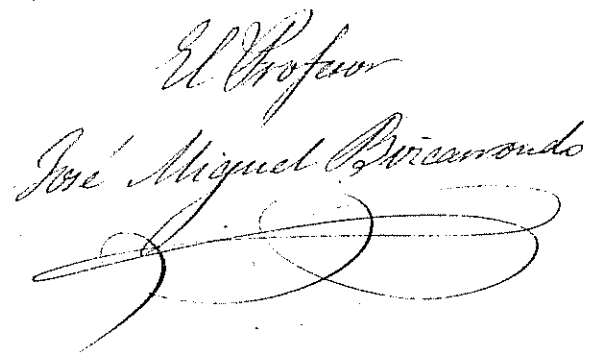 El Profesor
José Miguel Bizcarrondo